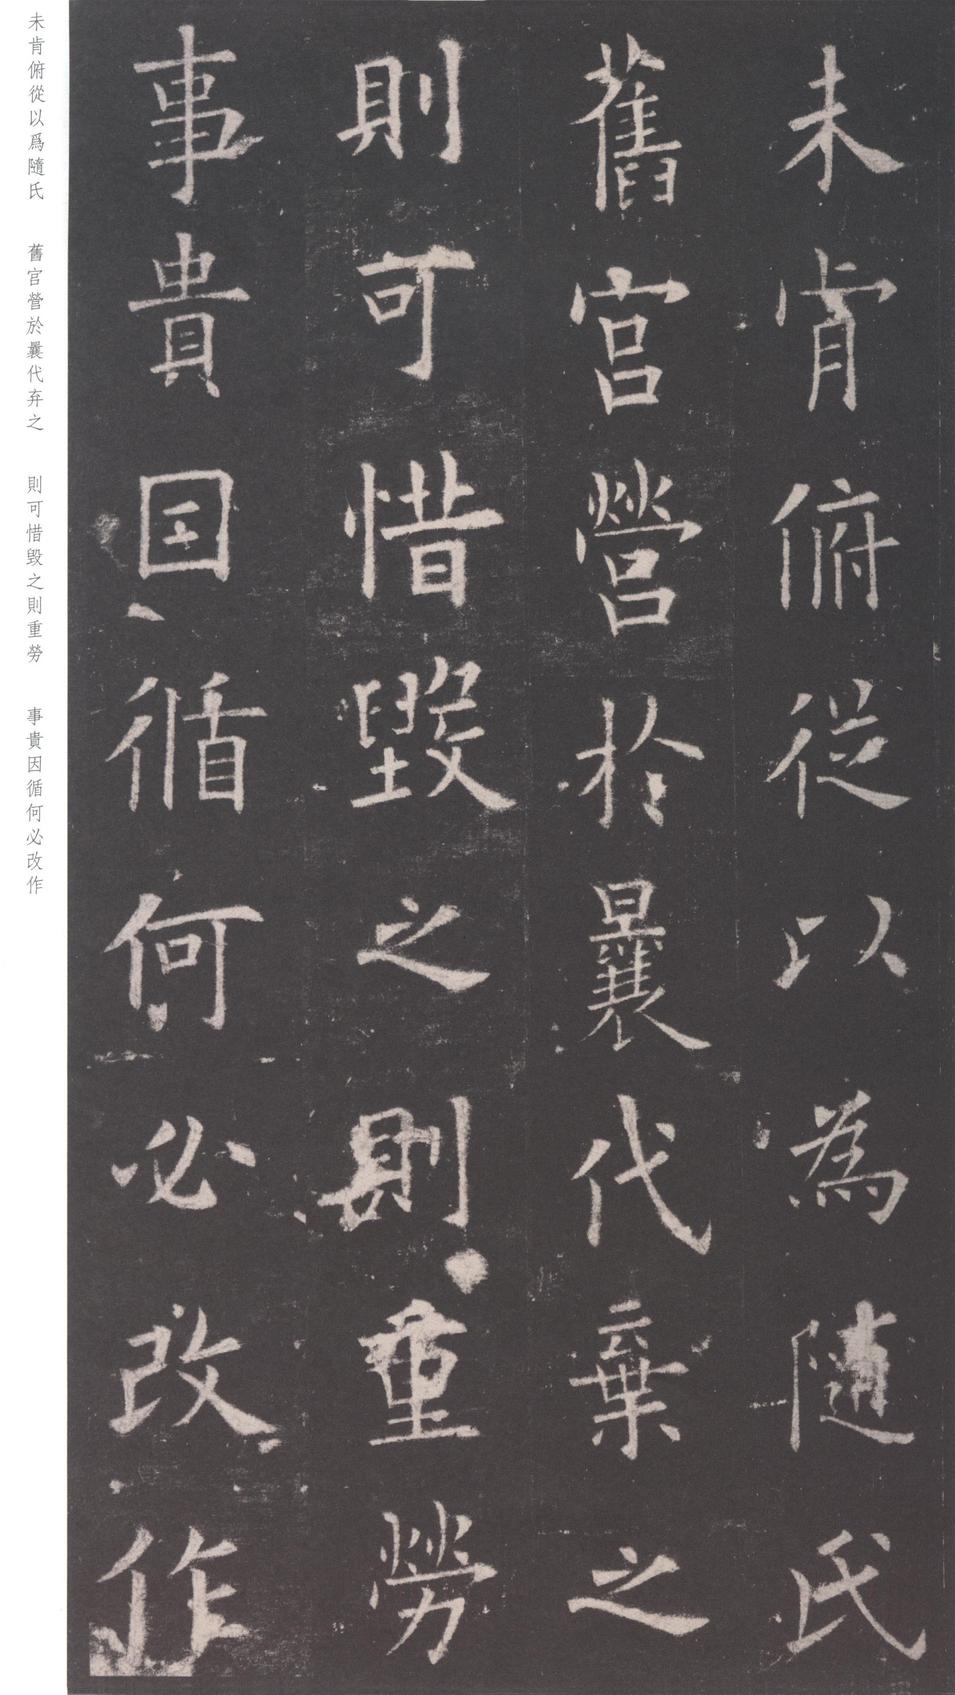 未肯俯從以為隨氏
舊宮營於曩代棄之
則可惜毀之則重勞
事貴因循何必改作
未肯俯從以爲隨氏　舊宫營於曩代弃之　則可惜毁之則重勞　事貴因循何必改作